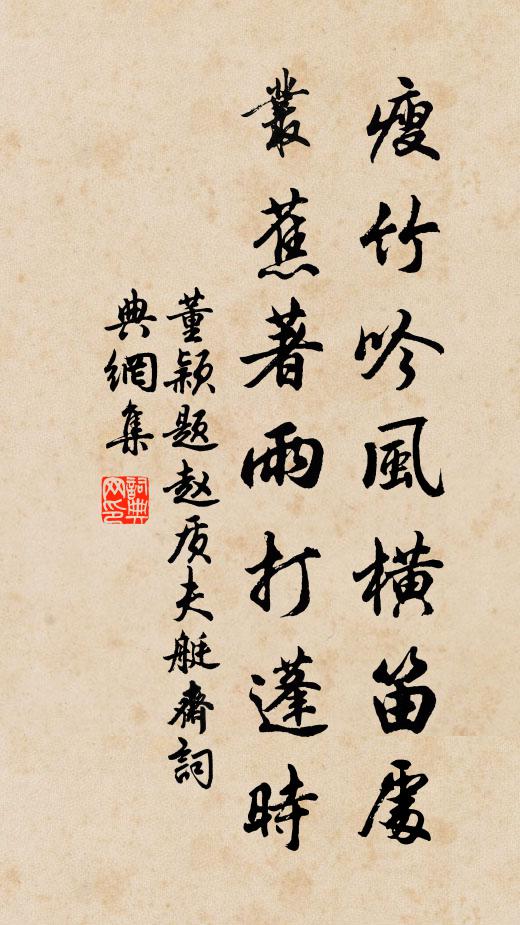 瘦竹吟風橫笛處
叢蕉著雨打蓬時
董潁題赵质夫艇齋詞
典網集
詞典
网印